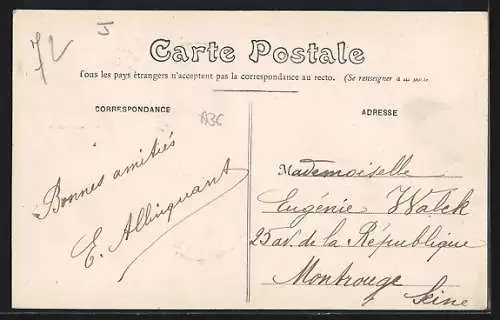 72
J
Carte Postale
Tous les pays étrangers n'acceptent pas la correspondance au recto. (Se renseigner à
CORRESPONDANCE
ADRESSE
Bonnes amitiés
E. Allinquant
Mademoiselle
Eugénie Walck
25 av. de la République
Montrouge
Seine